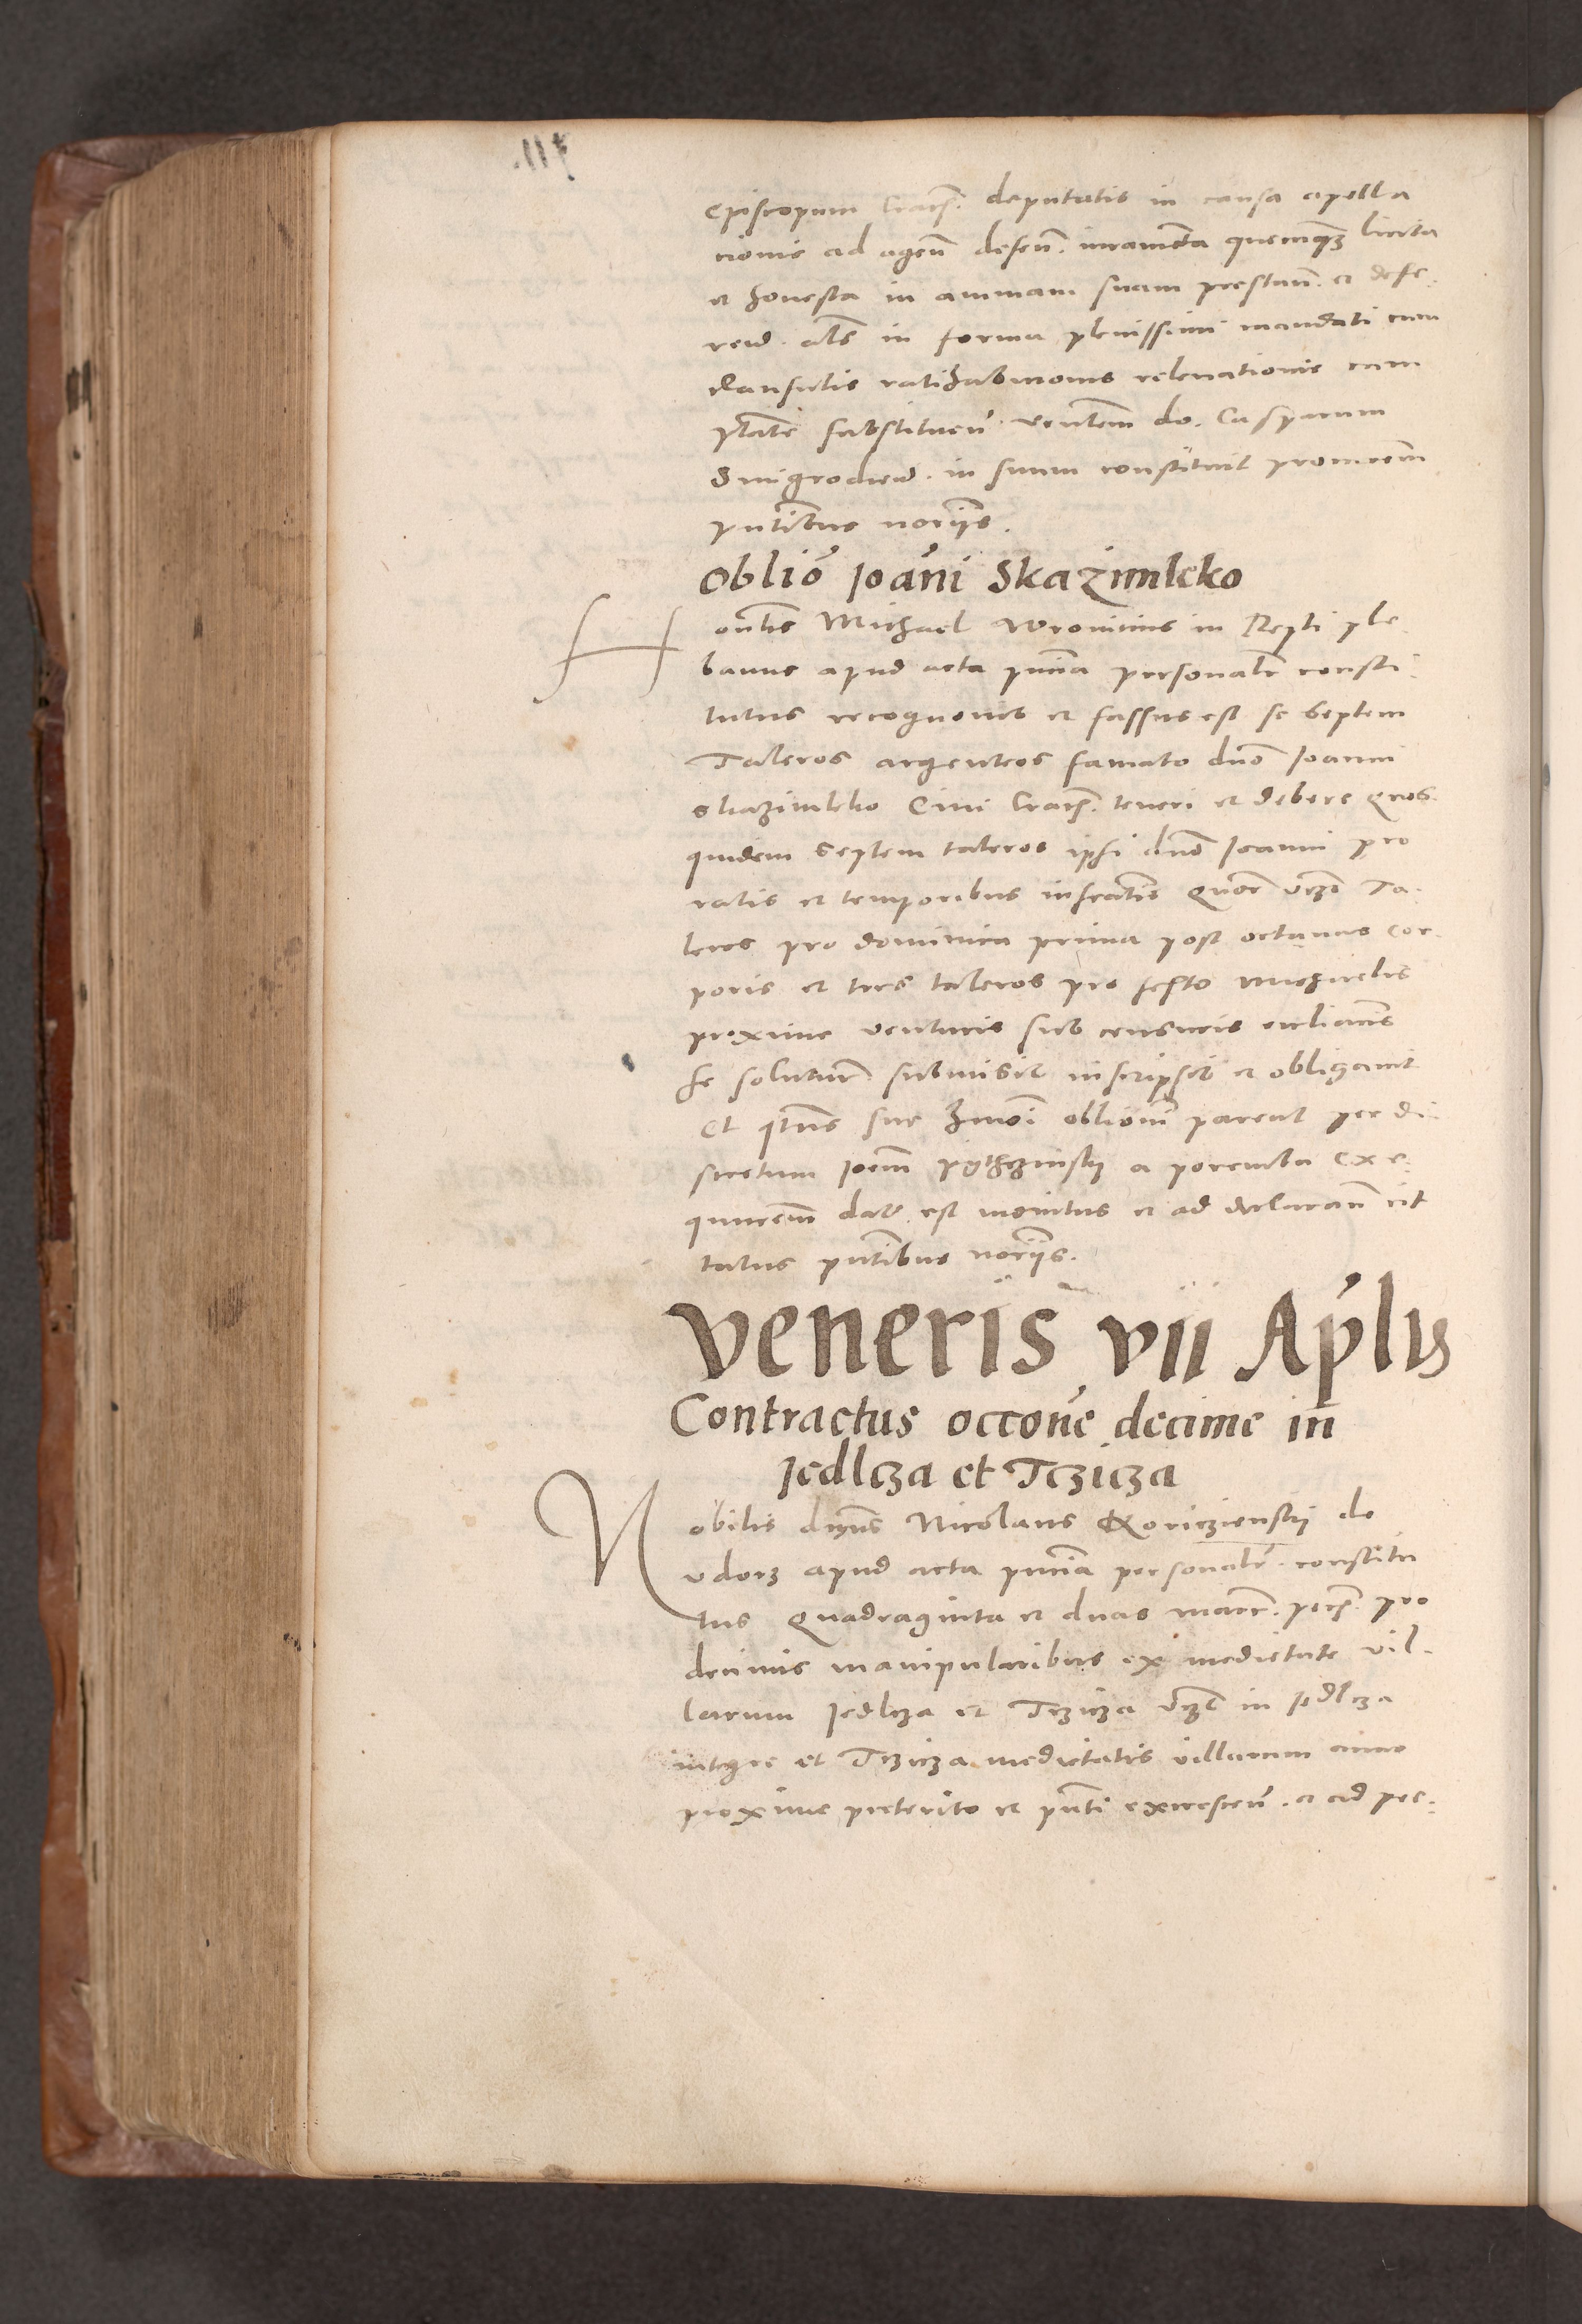 Episcopum Crac̃. deputatis in causa apella
cionis ad agen̄ defen̄. iuramenta quecumqȝ licita
et honesta in animam suam prestan̄. et defe-
rend. alš in forma plenissimi mandati cum
clausulis ratihabitionis relevationis cum
pťate substituen̄ ven̄lem do. Casparum
Smigrodien. in suum constituit procurẽm
pn̄tibus notȷ̃is.
Obliõ Ioãni Skazimleko
Honlis Michael Wroninus in Repti ple-
banus apud acta pn̄cia personalr̃ consti-
tutus recognovit et fassus est se septem
Taleros argenteos famato dno Ioanni
Skazimleko Civi Crac̃. teneri et debere Quos-
quidem septem taleros ipsi dno Ioanni pro
ratis et temporibus infrãtis Quor̃ vcȝt Ta-
leros pro dominica prima post octavas Cor-
poris et tres taleros pro festo Michaelis
proxime venturis sub censuris ecclicis
se soluturr̃ submisit inscripsit et obligavit
Et qtñs sue hmõi obliõni pareat per di-
scretum Ioẽm a poremba Exe-
qucrẽm datr̃ est monitus et ad declarañ cit
tatus pn̄tibus notȷ̃is.
Veneris vii Aplis
Contractus occõne decime in
Iedlcza et Tczicza
Nobilis dn̄s Nicolaus Koriczienskij de
vdorz apud acta pn̄cia personalr̃ constitu
tus Quadraginta et duas marc̃. pec̃. pro
decimis manipularibus ex medietate vil-
larum Iedlcza et Tczicza vcȝt in Iedlcza
integre et Tczicza medietatis villarum anno
proxime preterito et pn̄ti excrescen̄. et ad per-